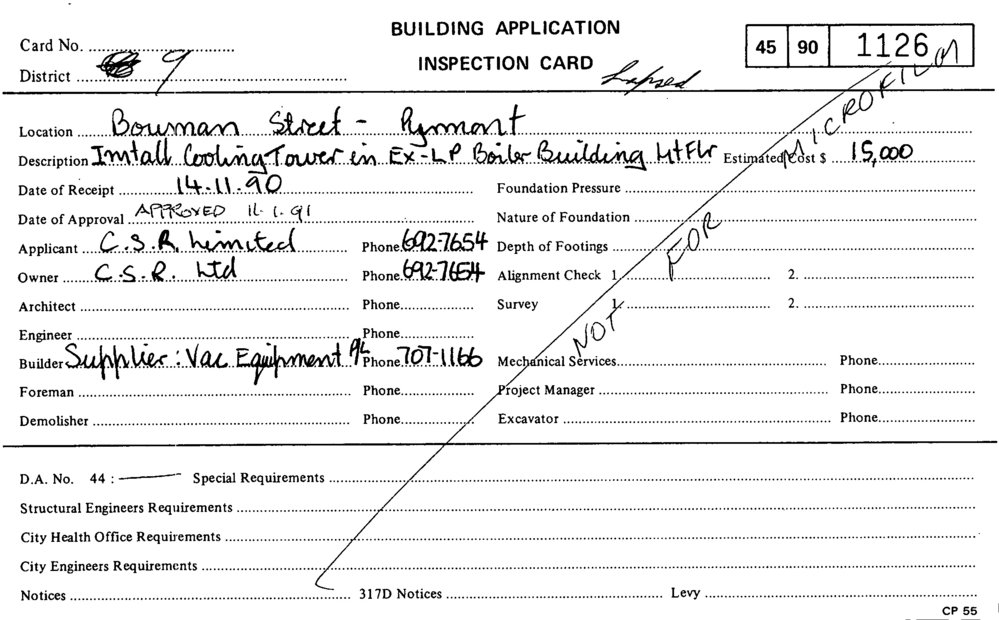 BUILDING APPLICATION
INSPECTION CARD
Card No.
District 9
Lapsed
45 90 1126
Location Bowman Street - Pyrmont
Description Install Cooling Tower in Ex-LP Boiler Building Estimated Cost $ 15,000
Date of Receipt 14.11.90 Foundation Pressure
Date of Approval APPROVED 11.1.91 Nature of Foundation
Applicant C.S.R. Limited Phone 692-7654 Depth of Footings
Owner C.S.R. Ltd Phone 692-7654 Alignment Check 1. 2.
Architect Phone Survey 1. 2.
Engineer Phone
Builder Supplier: Vac Equipment P/L Phone 707-1166 Mechanical Services Phone
Foreman Phone Project Manager Phone
Demolisher Phone Excavator Phone
NOT FOR MICROFILM
D.A. No. 44 : — Special Requirements
Structural Engineers Requirements
City Health Office Requirements
City Engineers Requirements
Notices 317D Notices Levy
CP 55